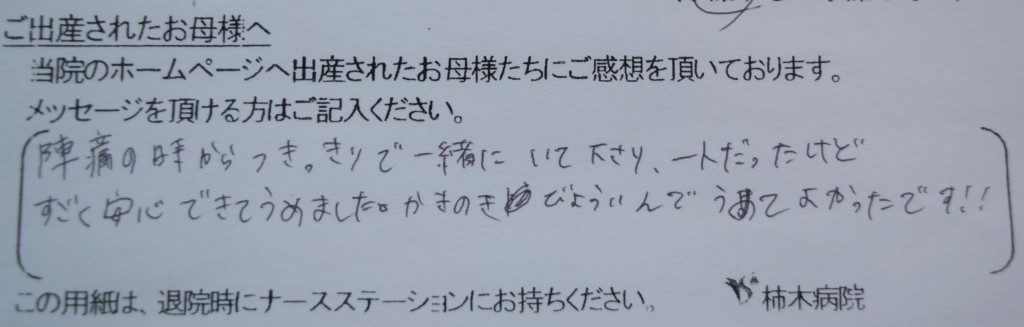 ご出産されたお母様へ
当院のホームページへ出産されたお母様たちにご感想を頂いております。
メッセージを頂ける方はご記入ください。
陣痛の時からつき。きりで一緒にいて下さり、一人だったけど
すごく安心できてうめました。かきのきびよういんでうめてよかったです!!
この用紙は、退院時にナースステーションにお持ちください。 柿木病院